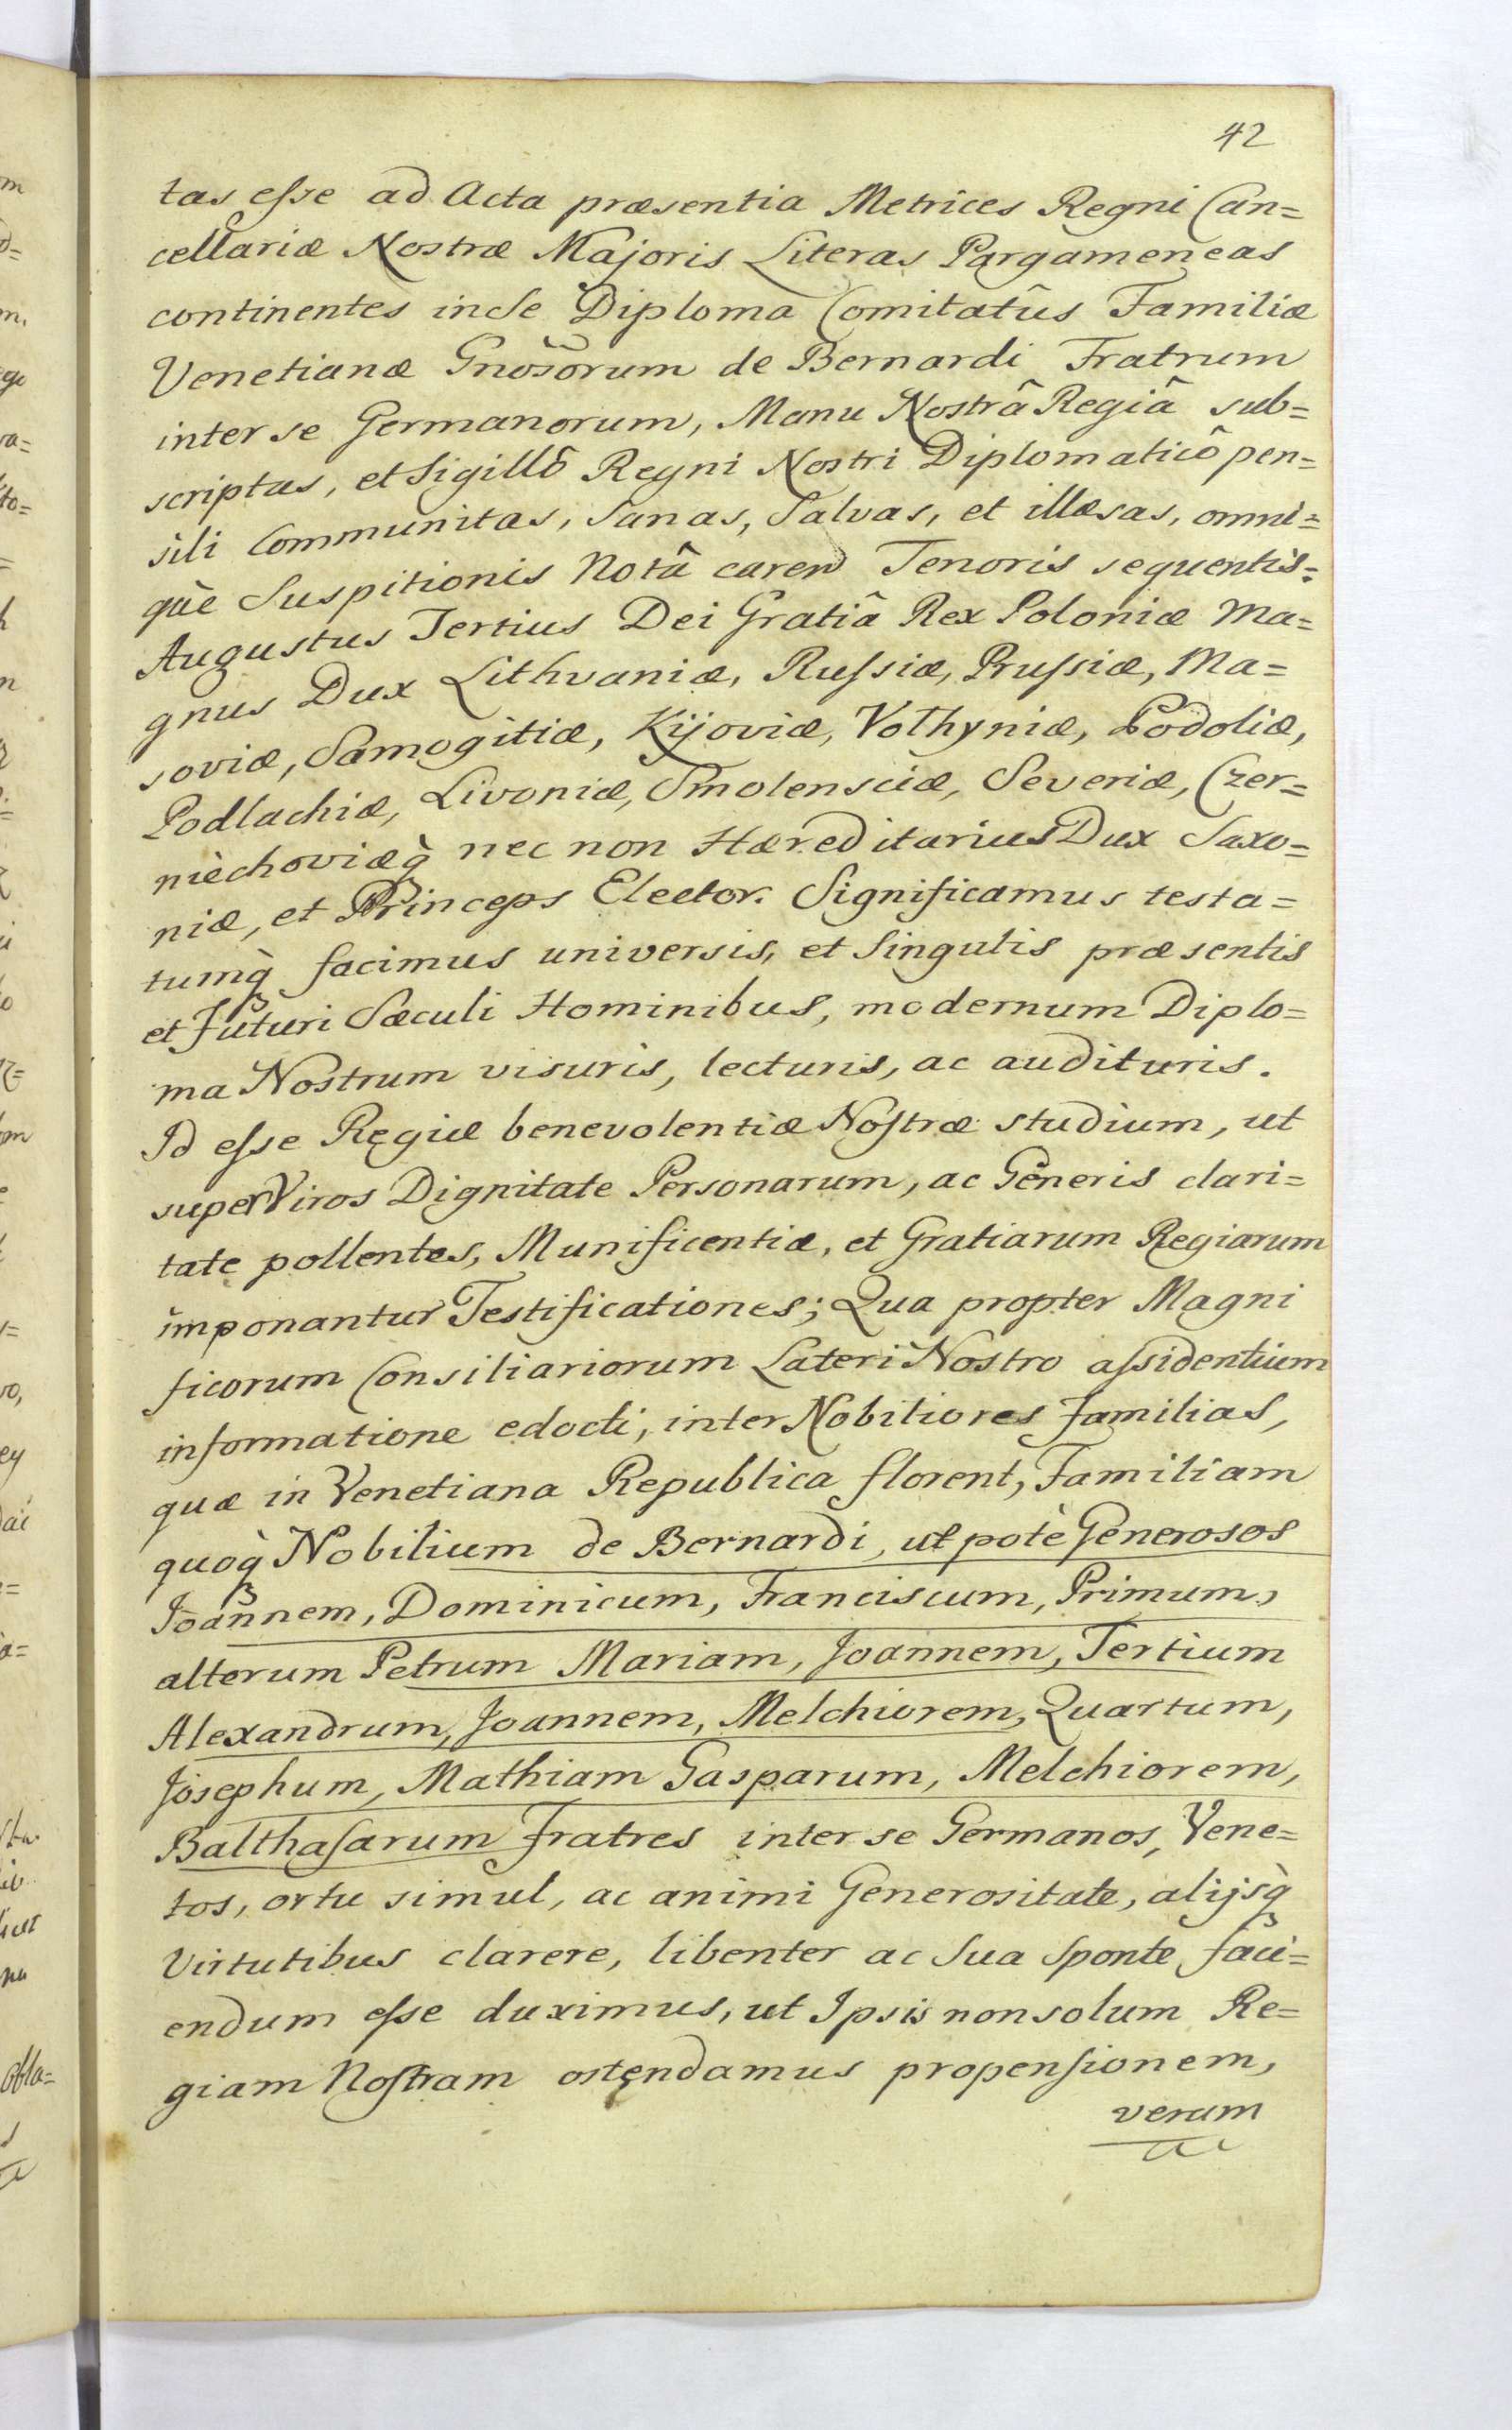 42
tas eſse ad Acta præsentia Metrices Regni Can=
cellariæ Nostræ Majoris Literas Pargameneas
continentes inSe Diploma Comitatûs Familiæ
Venetianæ Gnosorum de Bernardi Fratrum
inter se Germanorum, Manu Nostrâ Regiâ sub=
scriptas, et Sigillô Regni Nostri Diplomaticô pen=
sili Communitas, Sanas, Salvas, et illæsas, omni=
què Suspitionis Notâ caren Tenoris sequentis:
Augustus Tertius Dei Gratiâ Rex Poloniæ Ma=
gnus Dux Lithvaniæ, Ruſsiæ, Pruſsiæ, Ma=
soviæ, Samogitiæ, Kijoviæ, Volhyniæ, Podoliæ,
Podlachiæ, Livoniæ, Smolensciæ, Severiæ, Czer=
nièchoviæq̀ nec non Hæreditarius Dux Saxo=
niæ, et Princeps Elector. Significamus testa=
tumq̀ facimus universis, et Singulis præsentis
et Futuri Sæculi Hominibus, modernum Diplo=
ma Nostrum visuris, lecturis, ac audituris.
Id eſse Regiæ benevolentiæ Noſtræ studium, ut
super Viros Dignitate Personarum, ac Generis clari=
tate pollentes, Munificentiæ, et Gratiarum Regiarum
imponantur Testificationes; Qua propter Magni
ficorum Consiliariorum Lateri Nostro aſsidentium
informatione edocti, inter Nobiliores Familias,
quæ in Venetiana Republica florent, Familiam
quoq̀ Nobilium de Bernardi, ut potè Generosos
Joannem, Dominicum, Franciscum, Primum,
alterum Petrum Mariam, Joannem, Tertium
Alexandrum, Joannem, Melchiorem, Quartum,
Josephum, Mathiam Gasparum, Melchiorem,
Balthaſarum Fratres inter se Germanos, Vene=
tos, ortu simul, ac animi Generositate, alijsq̀
Virtutibus clarere, libenter ac Sua Sponte faci=
endum eſse duximus, ut Ipsis non solum Re=
giam Noſtram ostendamus propenſionem,
verum